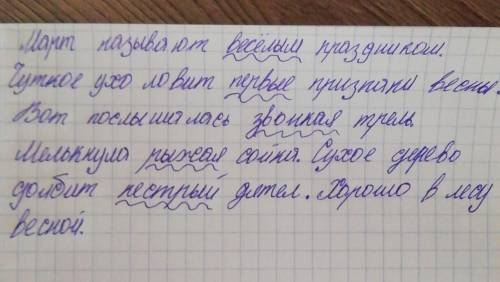 Март называют весёлым праздником.
Чуткое ухо ловит первые признаки весны.
Вот послышалась звонкая трель.
Мелькнула рыжая сойка. Сухое дерево
долбит пестрый дятел. Хорошо в лесу
весной.